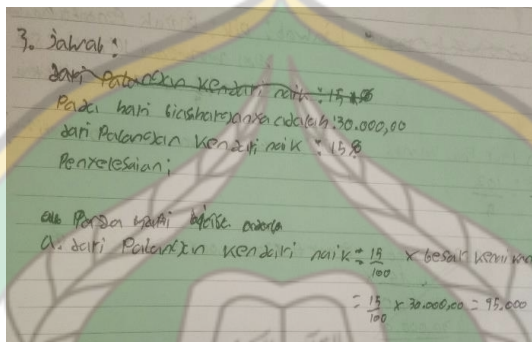 3. Jawab :
dari Palangkan kendari naik : 15 %
Pada hari biasharganya adalah : 30.000,00
dari Palangkan kendari naik : 15%
Penyelesaian ;
Pada hari
a. dari Palangkan kendari naik = 15/100 x besar kenaikan
= 15/100 x 30.000,00 = 95.000